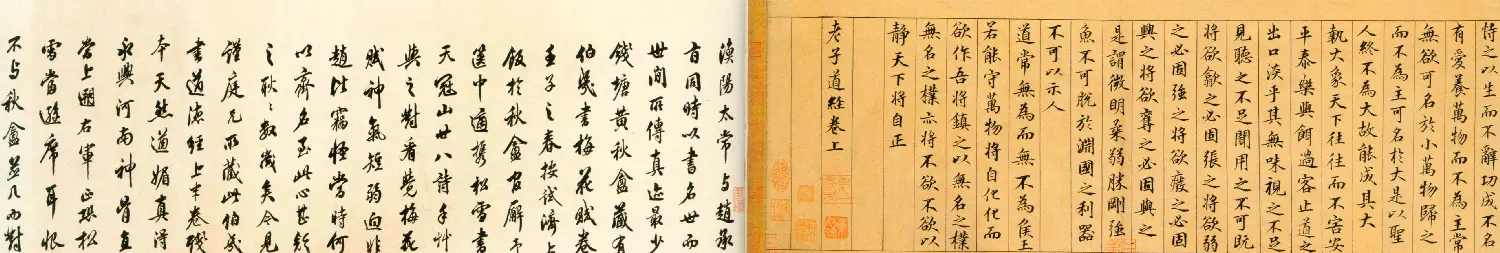 恃之以生而不辭功成不名
有愛養萬物而不為主常
無欲可名於小萬物歸之
而不為主可名於大是以聖
人終不為大故能成其大
執大象天下往往而不害安
平泰樂與餌過客止道之
出口淡乎其無味視之不足
見聽之不足聞用之不可既
將欲歙之必固張之將欲弱
之必固強之將欲廢之必固
興之將欲奪之必固與之
是謂微明柔弱勝剛強
魚不可脫於淵國之利器
不可以示人
道常無為而無不為侯王
若能守萬物將自化化而
欲作吾將鎮之以無名之樸
無名之樸亦將不欲不欲以
靜天下將自正
老子道經卷上
漁陽太常与趙承
旨同時以書名世而
世間所傳真迹最少
錢塘黃秋盦藏有
伯幾書梅花賦卷
壬子之春按試濟上
飯於秋盦官廨予
篋中適攜松雪書
天冠山廿八詩手艸
與之對看覺梅花
賦神氣短弱迥非
趙比竊怪當時何
以齊名至此心甚疑
之耿耿數歲矣今見
謹庭兄所藏此伯幾
書道德經上半卷殘
本天然遒媚真得
永興河南神骨直
當上溯右軍正恐松
雪當避席耳恨
不与秋盦並几而對